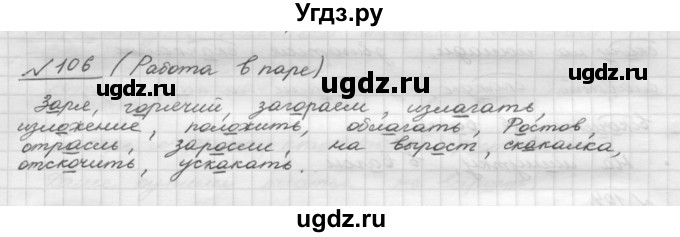 Угдз.ру
№106 (Работа в паре)
ugdz.ru
ugdz.ru
ugdz.ru
Заря, горячий, загораем, излагать,
изложение, положить, облагать, Ростов,
отрасль, заросли, на вырост, скакалка,
отскочить, ускакать.
ugdz.ru
ugdz.ru
ugdz.ru
Угдз.ру